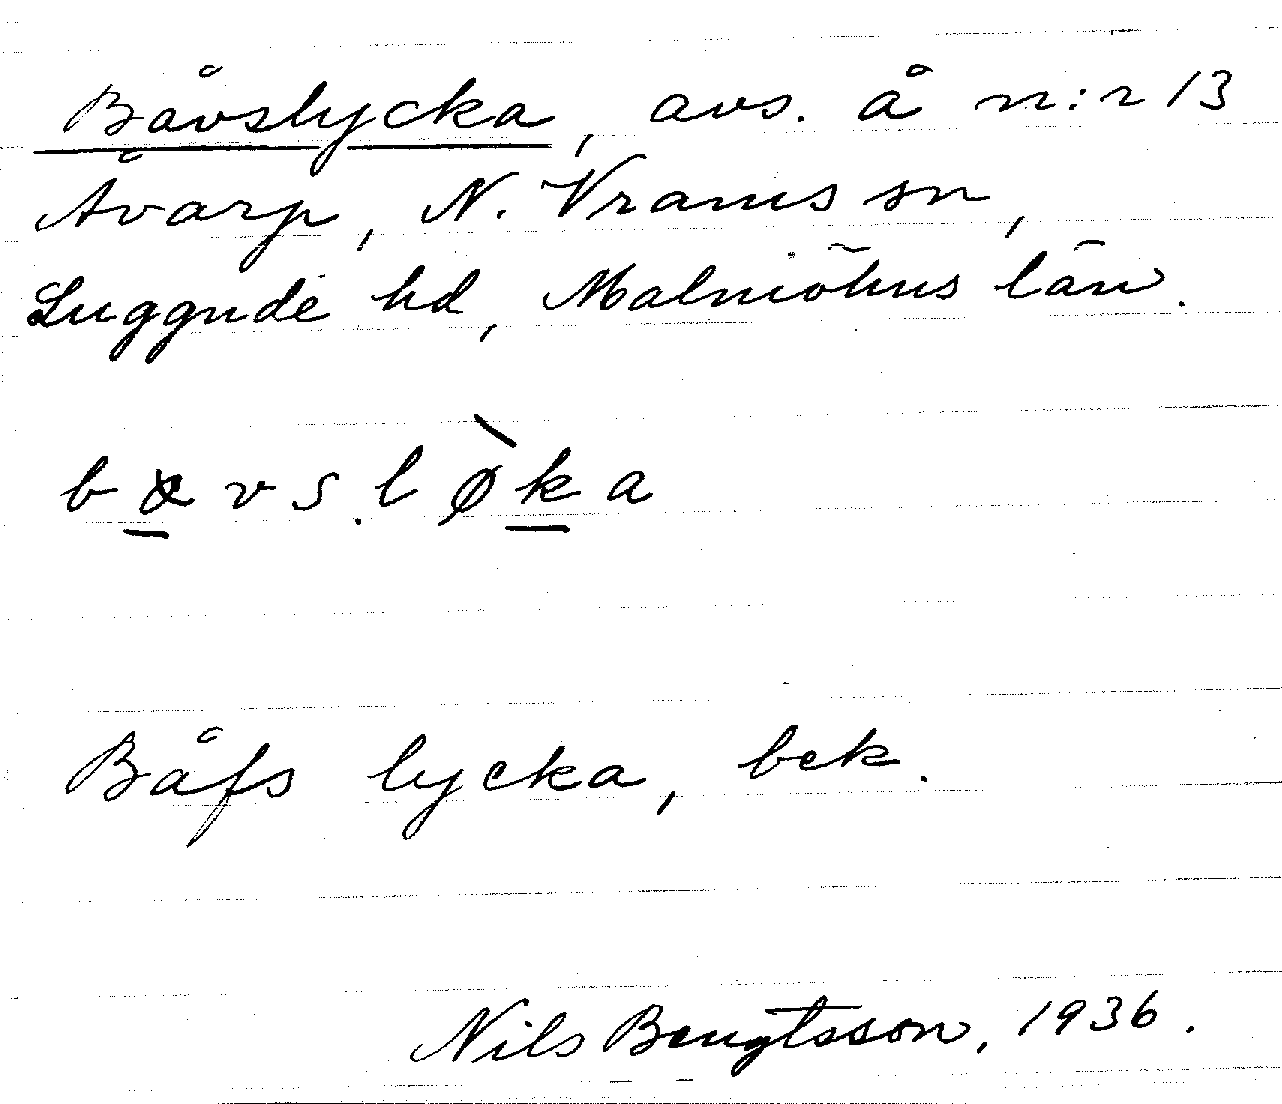 Båvslycka, avs. å n:r 13
Åvarp, N. Vrams sn,
Luggude hd, Malmöhus län.
Båfs lycka, bek.
Nils Bengtsson, 1936.